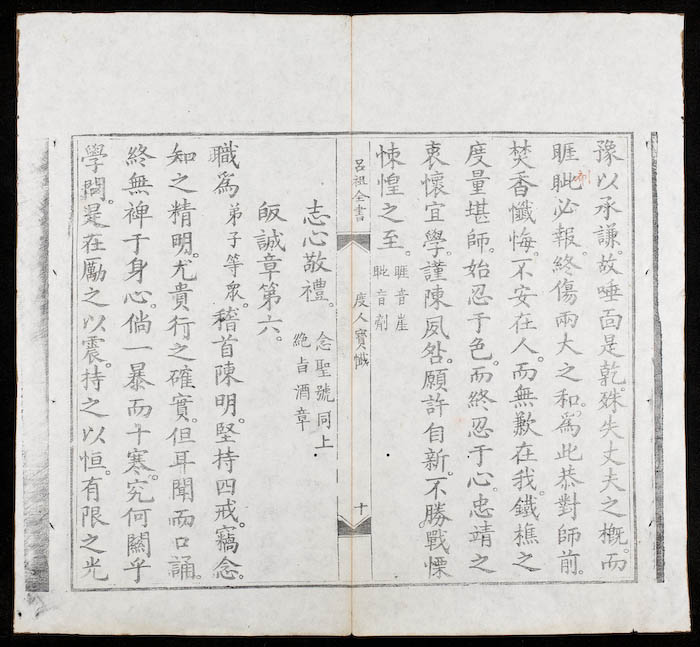 豫以承謙。故唾面是乾。殊失丈夫之概。而
睚眦必報。終傷兩大之和。爲此恭對師前。
焚香懺悔。不安在人。而無歉在我。鐵樵之
度量堪師。始忍于色。而終忍于心。忠靖之
衷懷宜學。謹陳夙咎。願許自新。不勝戰慄
悚惶之至。
睚音崖
眦音劑
呂祖全書
度人寶懺
十
志心敬禮。
念聖號同上
絶旨酒章
皈誠章第六。
職爲弟子等衆。稽首陳明。堅持四戒。竊念。
知之精明。尤貴行之確實。但耳聞而口誦。
終無裨于身心。倘一暴而十寒。究何關乎
學問。是在勵之以震。持之以恒。有限之光